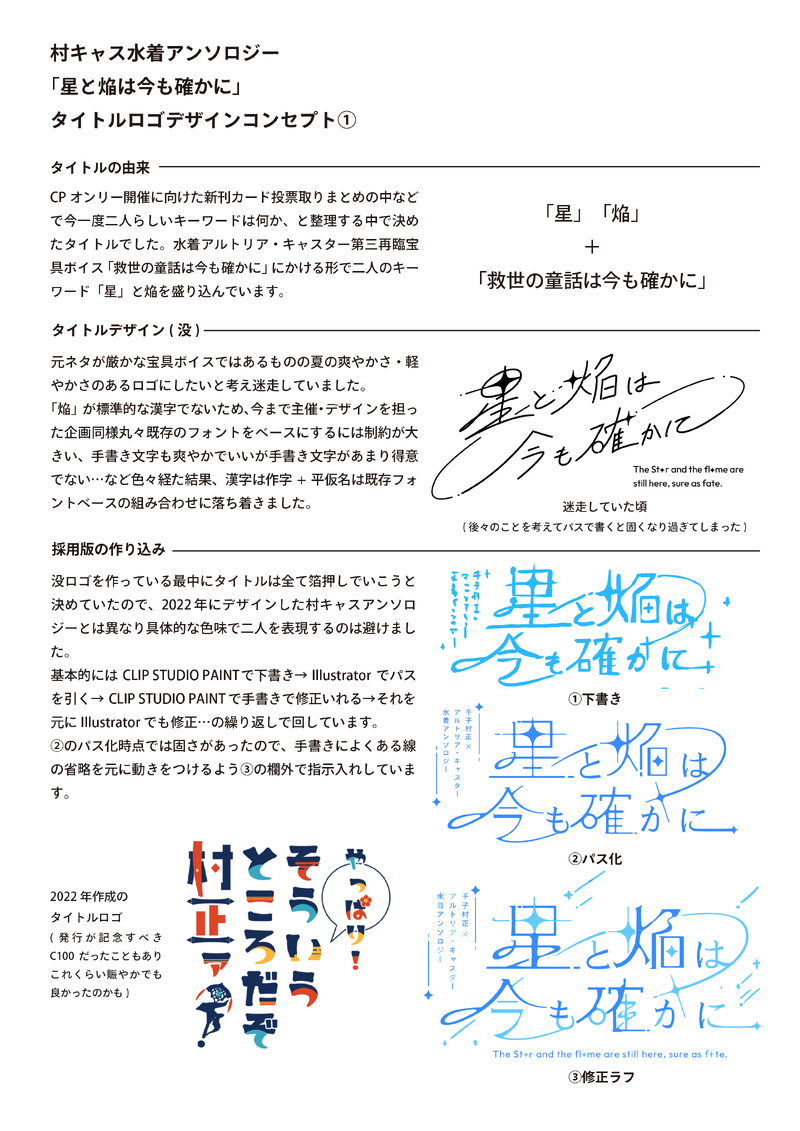 村キャス水着アンソロジー
「星と焔は今も確かに」
タイトルロゴデザインコンセプト①
タイトルの由来
CP オンリー開催に向けた新刊カード投票取りまとめの中など
で今一度二人らしいキーワードは何か、と整理する中で決め
たタイトルでした。水着アルトリア・キャスター第三再臨宝
具ボイス「救世の童話は今も確かに」にかける形で二人のキー
ワード「星」と焔を盛り込んでいます。
「星」「焔」
＋
「救世の童話は今も確かに」
タイトルデザイン ( 没 )
元ネタが厳かな宝具ボイスではあるものの夏の爽やかさ・軽
やかさのあるロゴにしたいと考え迷走していました。
「焔」が標準的な漢字でないため、今まで主催・デザインを担っ
た企画同様丸々既存のフォントをベースにするには制約が大
きい、手書き文字も爽やかでいいが手書き文字があまり得意
でない…など色々経た結果、漢字は作字 + 平仮名は既存フォ
ントベースの組み合わせに落ち着きました。
星と焔は
今も確かに
The St✦r and the fl✦me are
still here, sure as fate.
迷走していた頃
( 後々のことを考えてパスで書くと固くなり過ぎてしまった )
採用版の作り込み
没ロゴを作っている最中にタイトルは全て箔押しでいこうと
決めていたので、2022 年にデザインした村キャスアンソロ
ジーとは異なり具体的な色味で二人を表現するのは避けまし
た。
基本的には CLIP STUDIO PAINT で下書き→ Illustrator でパス
を引く→ CLIP STUDIO PAINT で手書きで修正いれる→それを
元に Illustrator でも修正…の繰り返しで回しています。
②のパス化時点では固さがあったので、手書きによくある線
の省略を元に動きをつけるよう③の欄外で指示入れしていま
す。
星と焔は
今も確かに
①下書き
千子村正×
アルトリア・キャスター
水着アンソロジー
星と焔は
今も確かに
②パス化
千子村正×
アルトリア・キャスター
水着アンソロジー
星と焔は
今も確かに
The St✦r and the fl✦me are still here, sure as f✦te.
③修正ラフ
2022 年作成の
タイトルロゴ
( 発行が記念すべき
C100 だったこともあり
これくらい賑やかでも
良かったのかも )
やっぱり！
そういう
ところだぞ
村正ァ！